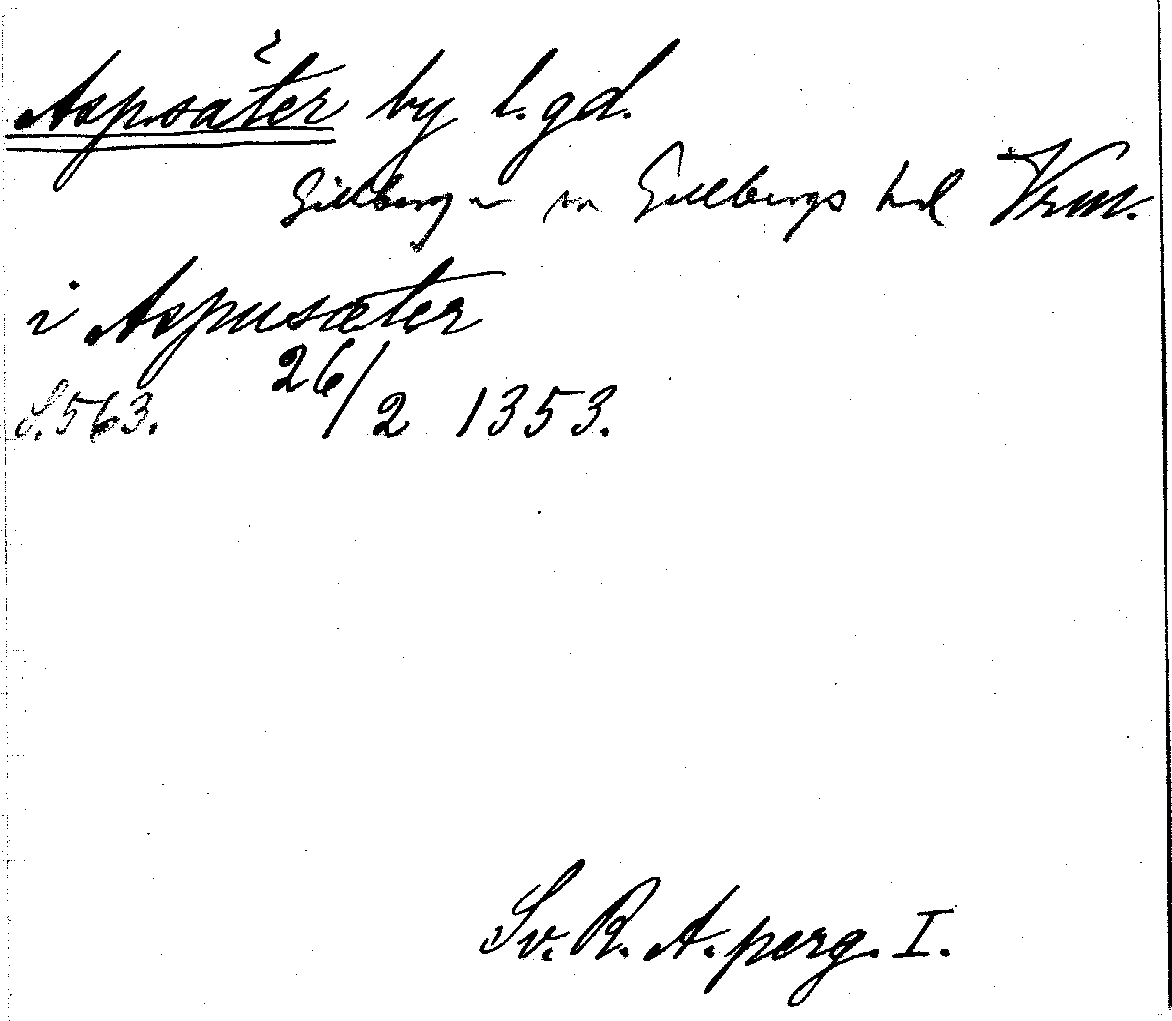 Aspsäter by l. gd.
Gillberga sn Gillbergs hd Vrm.
i Aspusæter
S. 563. 26/2 1353.
Sv. R. A. perg. I.